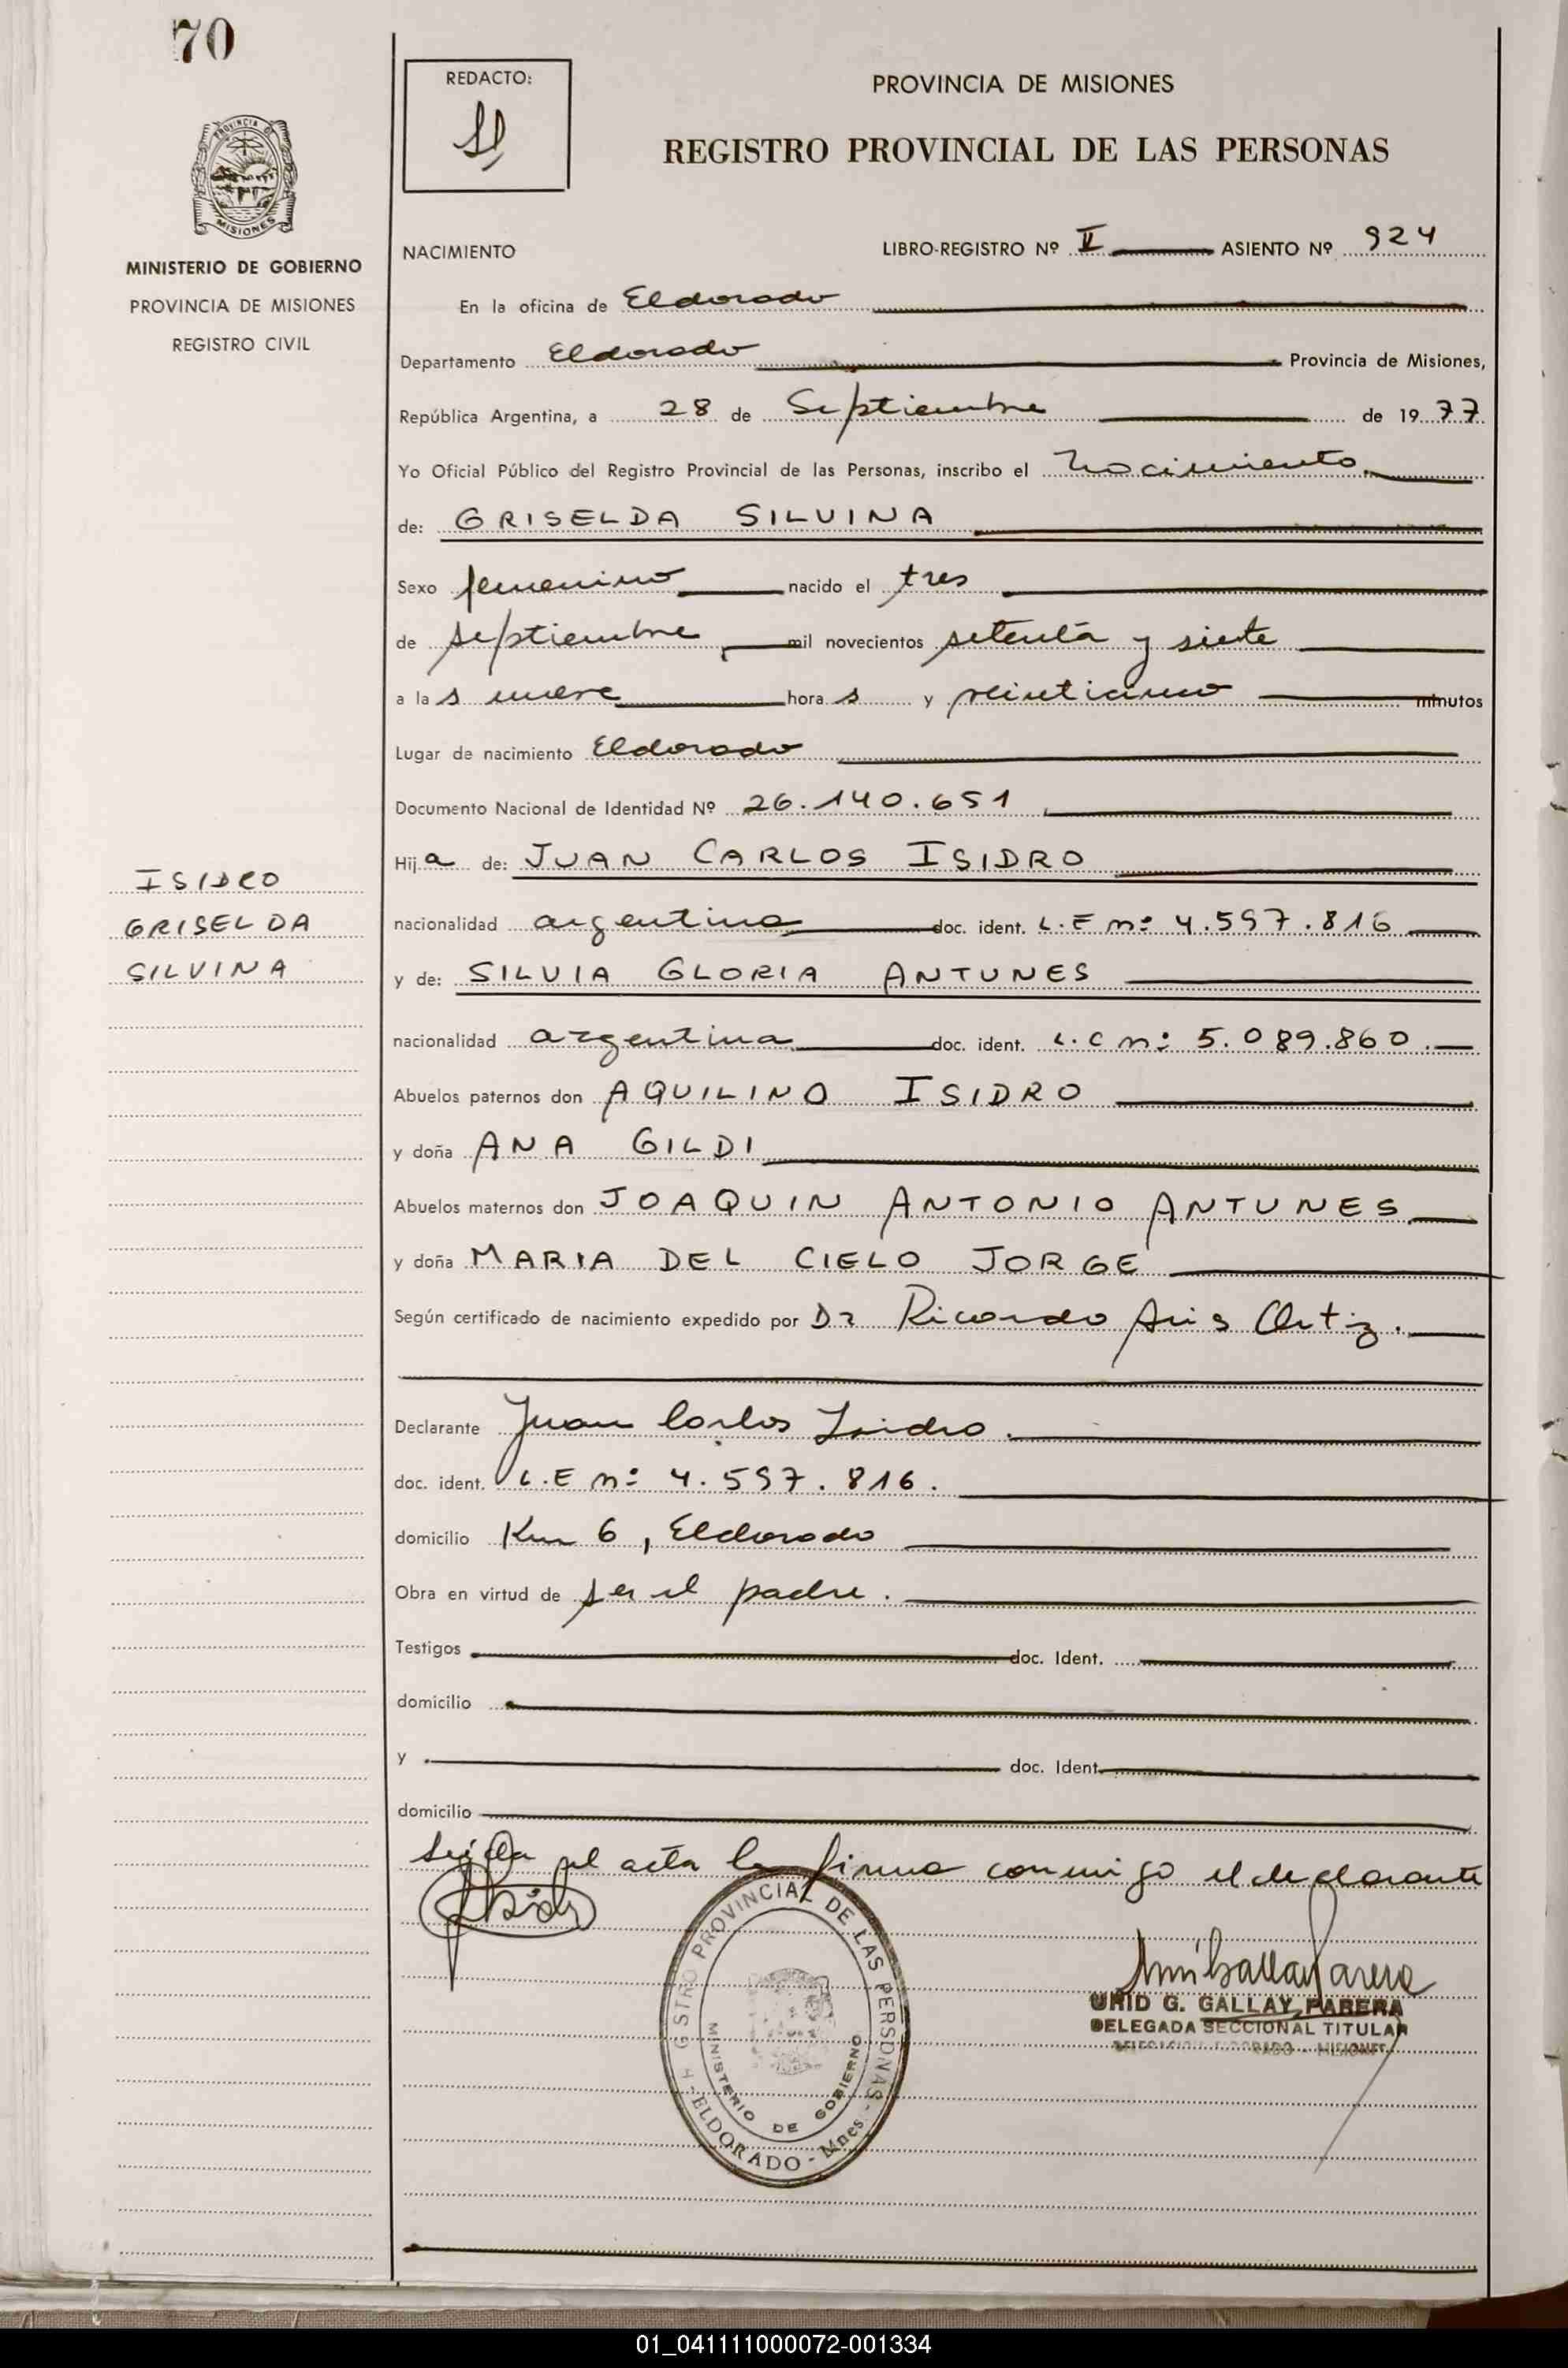 70
PROVINCIA DE
MISIONES
MINISTERIO DE GOBIERNO
PROVINCIA DE MISIONES
REGISTRO CIVIL
ISIDRO
GRISELDA
SILVINA
REDACTO:
PROVINCIA DE MISIONES
REGISTRO PROVINCIAL DE LAS PERSONAS
NACIMIENTO LIBRO-REGISTRO Nº II ASIENTO Nº 924
En la oficina de Eldorado
Departamento Eldorado Provincia de Misiones,
República Argentina, a 28 de Septiembre de 1977
Yo Oficial Público del Registro Provincial de las Personas, inscribo el nacimiento
de: GRISELDA SILVINA
Sexo femenino nacido el tres
de septiembre mil novecientos setenta y siete
a las nueve horas y veinticinco minutos
Lugar de nacimiento Eldorado
Documento Nacional de Identidad Nº 26.140.651
Hija de: JUAN CARLOS ISIDRO
nacionalidad argentina doc. ident. L.E nº 4.597.816
y de: SILVIA GLORIA ANTUNES
nacionalidad argentina doc. ident. L.C nº 5.089.860
Abuelos paternos don AQUILINO ISIDRO
y doña ANA GILDI
Abuelos maternos don JOAQUIN ANTONIO ANTUNES
y doña MARIA DEL CIELO JORGE
Según certificado de nacimiento expedido por Dr Ricardo Aris Ortiz.
Declarante Juan Carlos Isidro.
doc. ident. L.E nº 4.597.816.
domicilio Km 6, Eldorado
Obra en virtud de ser el padre.
Testigos doc. Ident.
domicilio
y doc. Ident.
domicilio
Leída el acta la firma conmigo el declarante
PROVINCIAL DE LAS PERSONAS
MINISTERIO DE GOBIERNO
ELDORADO - Mnes.
G. GALLAY PARERA
DELEGADA SECCIONAL TITULAR
01_041111000072-001334